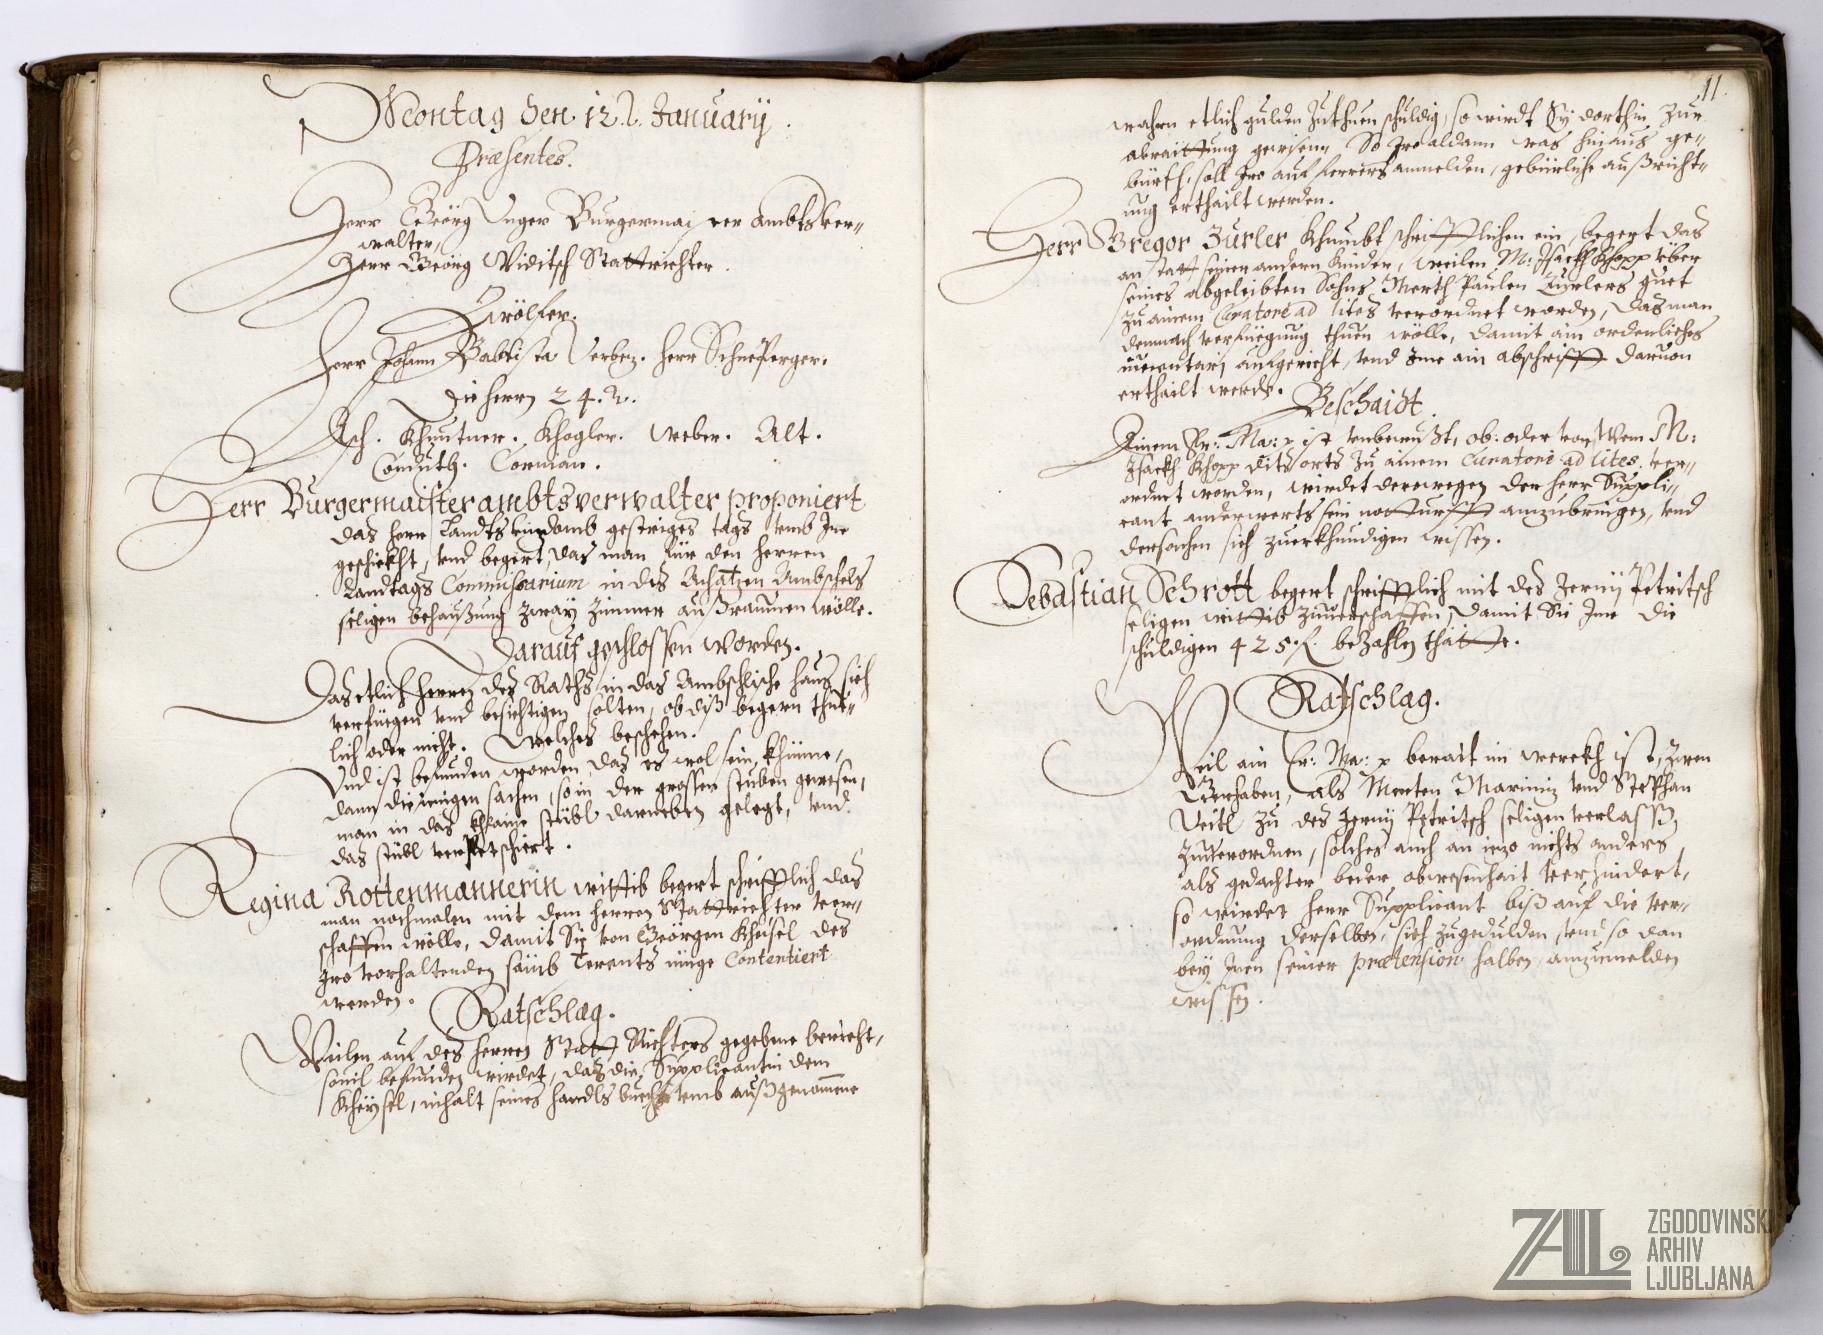 Montag den 12. January.
Præsentes.
Herr Georg Unger Burgermaister ambts ver-
walter,
Herr Georg Viditsch Stattrichter.
Zwölfer.
Herr Johann Babtista Verbez. Herr Schneperger.
Die herrn 24.r.
Khuntner. Khogler. Weber. Alt.
Cornion.
Herr Burgermaister ambtsverwalter proponiert
das herr Landts gestriges tags vmb Ine
geschickht, vnd begert, das man für den herren
Landtags Commissarium in des Achatzen Ambschels
seligen behaußung zway Zimmer außraumen wölle.
Darauf geschlossen worden.
Das etlich herren des Raths in das Ambschlische hauß sich
verfuegen vnd besichtigen solten, ob diß begern thuet-
lich oder nicht. Welches beschehen.
Vnd ist befunden worden, das es wol sein khünne,
dann die ienigen sachen, so in der grossen stuben gewesen,
man in das khlaine stübl darneben gelegt, vnd
das stübl verpetschiert.
Regina Rottenmannerin wittib begert schrifftlich das
man nochmalen mit dem herren Stattrichter ver-
schaffen wölle, damit Sy von Geörgen Kheisel des
Iro vorhaltenden contentiert
werden.
Ratschlag.
Weilen auf des herren Statt Richters gegebne bericht,
souil befunden wirdet, das die Supplicantin dem
Kheysel, inhalt seines handls buech vmb außgenommene
11
wahrn etlich gulden zuthuen schuldig, so wirdt Sy dorthin zur
abraittung gewisen. So Iro aldann was hinauß ge-
bürth, soll Iro auf ferrers anmelden, gebürliche außricht-
ung erthailt werden.
Herr Gregor Zurler khumbt schrifftlichen ein, begert das
an statt seiner andern Kinder, weilen M: Isackh Khopp über
seines abgeleibten Sohns Merth Paulen Zurlers guet
zu ainem Curatore ad lites verordnet worden, das man
demnach verfüegung thuen wölle, damit ain ordenliches
inuentarj aufgericht, vnd Ime ain abschrifft daruon
erthailt werde.
Beschaidt.
Ainem Er: Ma: r ist vnbewußt, ob: oder von wem M:
Isackh Khopp dits orts zu ainem Curatore ad lites ver-
ordnet worden, wirdet derwegen der herr Suppli-
cant anderwerts sein notturfft anzubringen, vnd
dersachen sich zuerkhundigen wissen.
Sebastian Schrott begert schrifftlich mit des Jernij Petritsch
seligen wittib zuuerschaffen, damit Sie Ime die
schuldigen 425 f. bezahlen thätte.
Ratschlag.
Weil ain Er: Ma: r berait im werckh ist, zwen
Gerhaben, als Merten Marinin vnd Stephan
Veitl zu des Jernij Petritsch seligen verlaß
zuuerordnen, solches auch an iezo nichts anders
als gedachter beder abwesenhait verhindert,
so wirdet herr Supplicant biß auf die ver-
ordnung derselben, sich zugedulden, vnd so dan
bey Inen seiner prætension halben, anzumelden
wissen.
ZAL
ZGODOVINSKI
ARHIV
LJUBLJANA